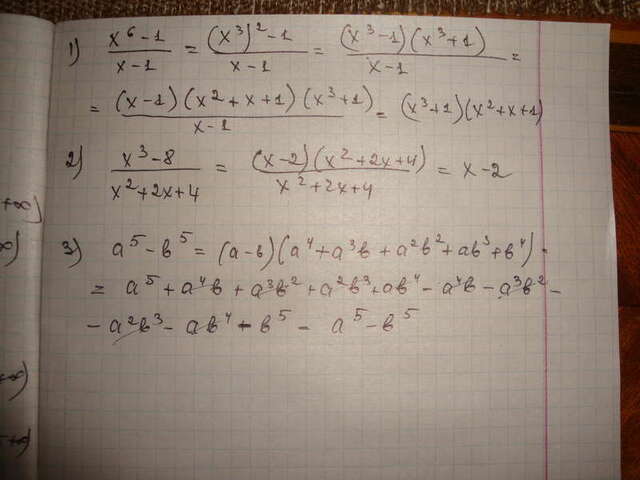 1) (x^6-1)/(x-1) = ((x^3)^2-1)/(x-1) = ((x^3-1)(x^3+1))/(x-1) =
= ((x-1)(x^2+x+1)(x^3+1))/(x-1) = (x^3+1)(x^2+x+1)
2) (x^3-8)/(x^2+2x+4) = ((x-2)(x^2+2x+4))/(x^2+2x+4) = x-2
3) a^5-в^5 = (a-в)(a^4+a^3в+a^2в^2+aв^3+в^4)
= a^5+a^4в+a^3в^2+a^2в^3+aв^4-a^4в-a^3в^2-
-a^2в^3-aв^4-в^5 = a^5-в^5
+∞)
∞)
+∞)
+∞)